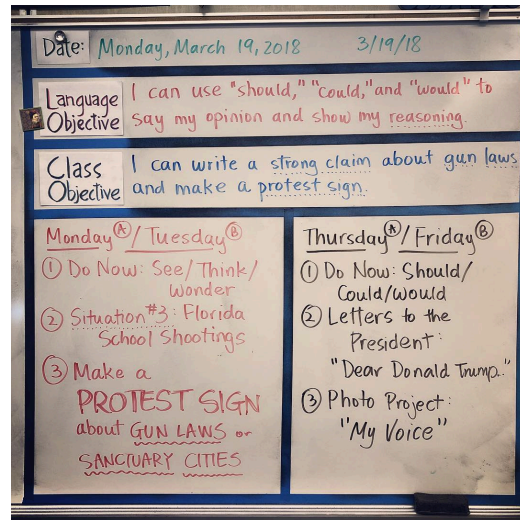 Date: Monday, March 19, 2018 3/19/18
Language Objective
I can use "should," "could," and "would" to
say my opinion and show my reasoning.
Class Objective
I can write a strong claim about gun laws
and make a protest sign.
Monday Ⓐ / Tuesday Ⓑ
① Do Now: See/Think/
Wonder
② Situation #3: Florida
School Shootings
③ Make a
PROTEST SIGN
about GUN LAWS or
SANCTUARY CITIES
Thursday Ⓐ / Friday Ⓑ
① Do Now: Should/
Could/Would
② Letters to the
President:
"Dear Donald Trump."
③ Photo Project:
"My Voice"